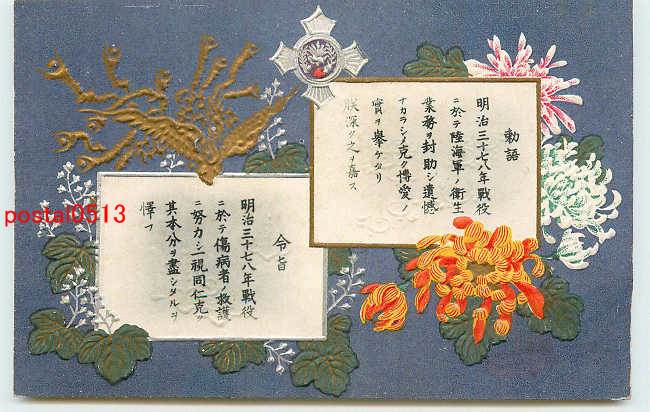 勅語
明治三十七八年戦役
ニ於テ陸海軍ノ衛生
業務ヲ封助シ遺憾
ナカラシメ克ク博愛ノ
實ヲ舉ケタリ
朕深ク之ヲ嘉ス
令旨
明治三十七八年戦役
ニ於テ傷病者ノ救護
ニ努力シ一視同仁克ク
其本分ヲ盡シタルヲ
懌フ
postal0513